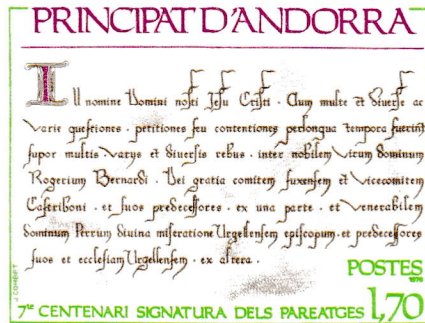 PRINCIPAT D'ANDORRA
In nomine Domini nostri Jesu Cristi . Cum multe et diverse ac
varie questiones . petitiones seu contentiones perlongua tempora fuerint
supor multis . varys et diversis rebus . inter nobilem virum dominum
Rogerium Bernardi . Dei gratia comitem fuxensem et vicecomitem
Castriboni . et suos predecessores . ex una parte . et venerabilem
dominum Petrum divina miseratione Urgellensem episcopum . et predecessores
suos et ecclesiam Urgellensem . ex altera .
POSTES
1978
7è CENTENARI SIGNATURA DELS PAREATGES 1,70